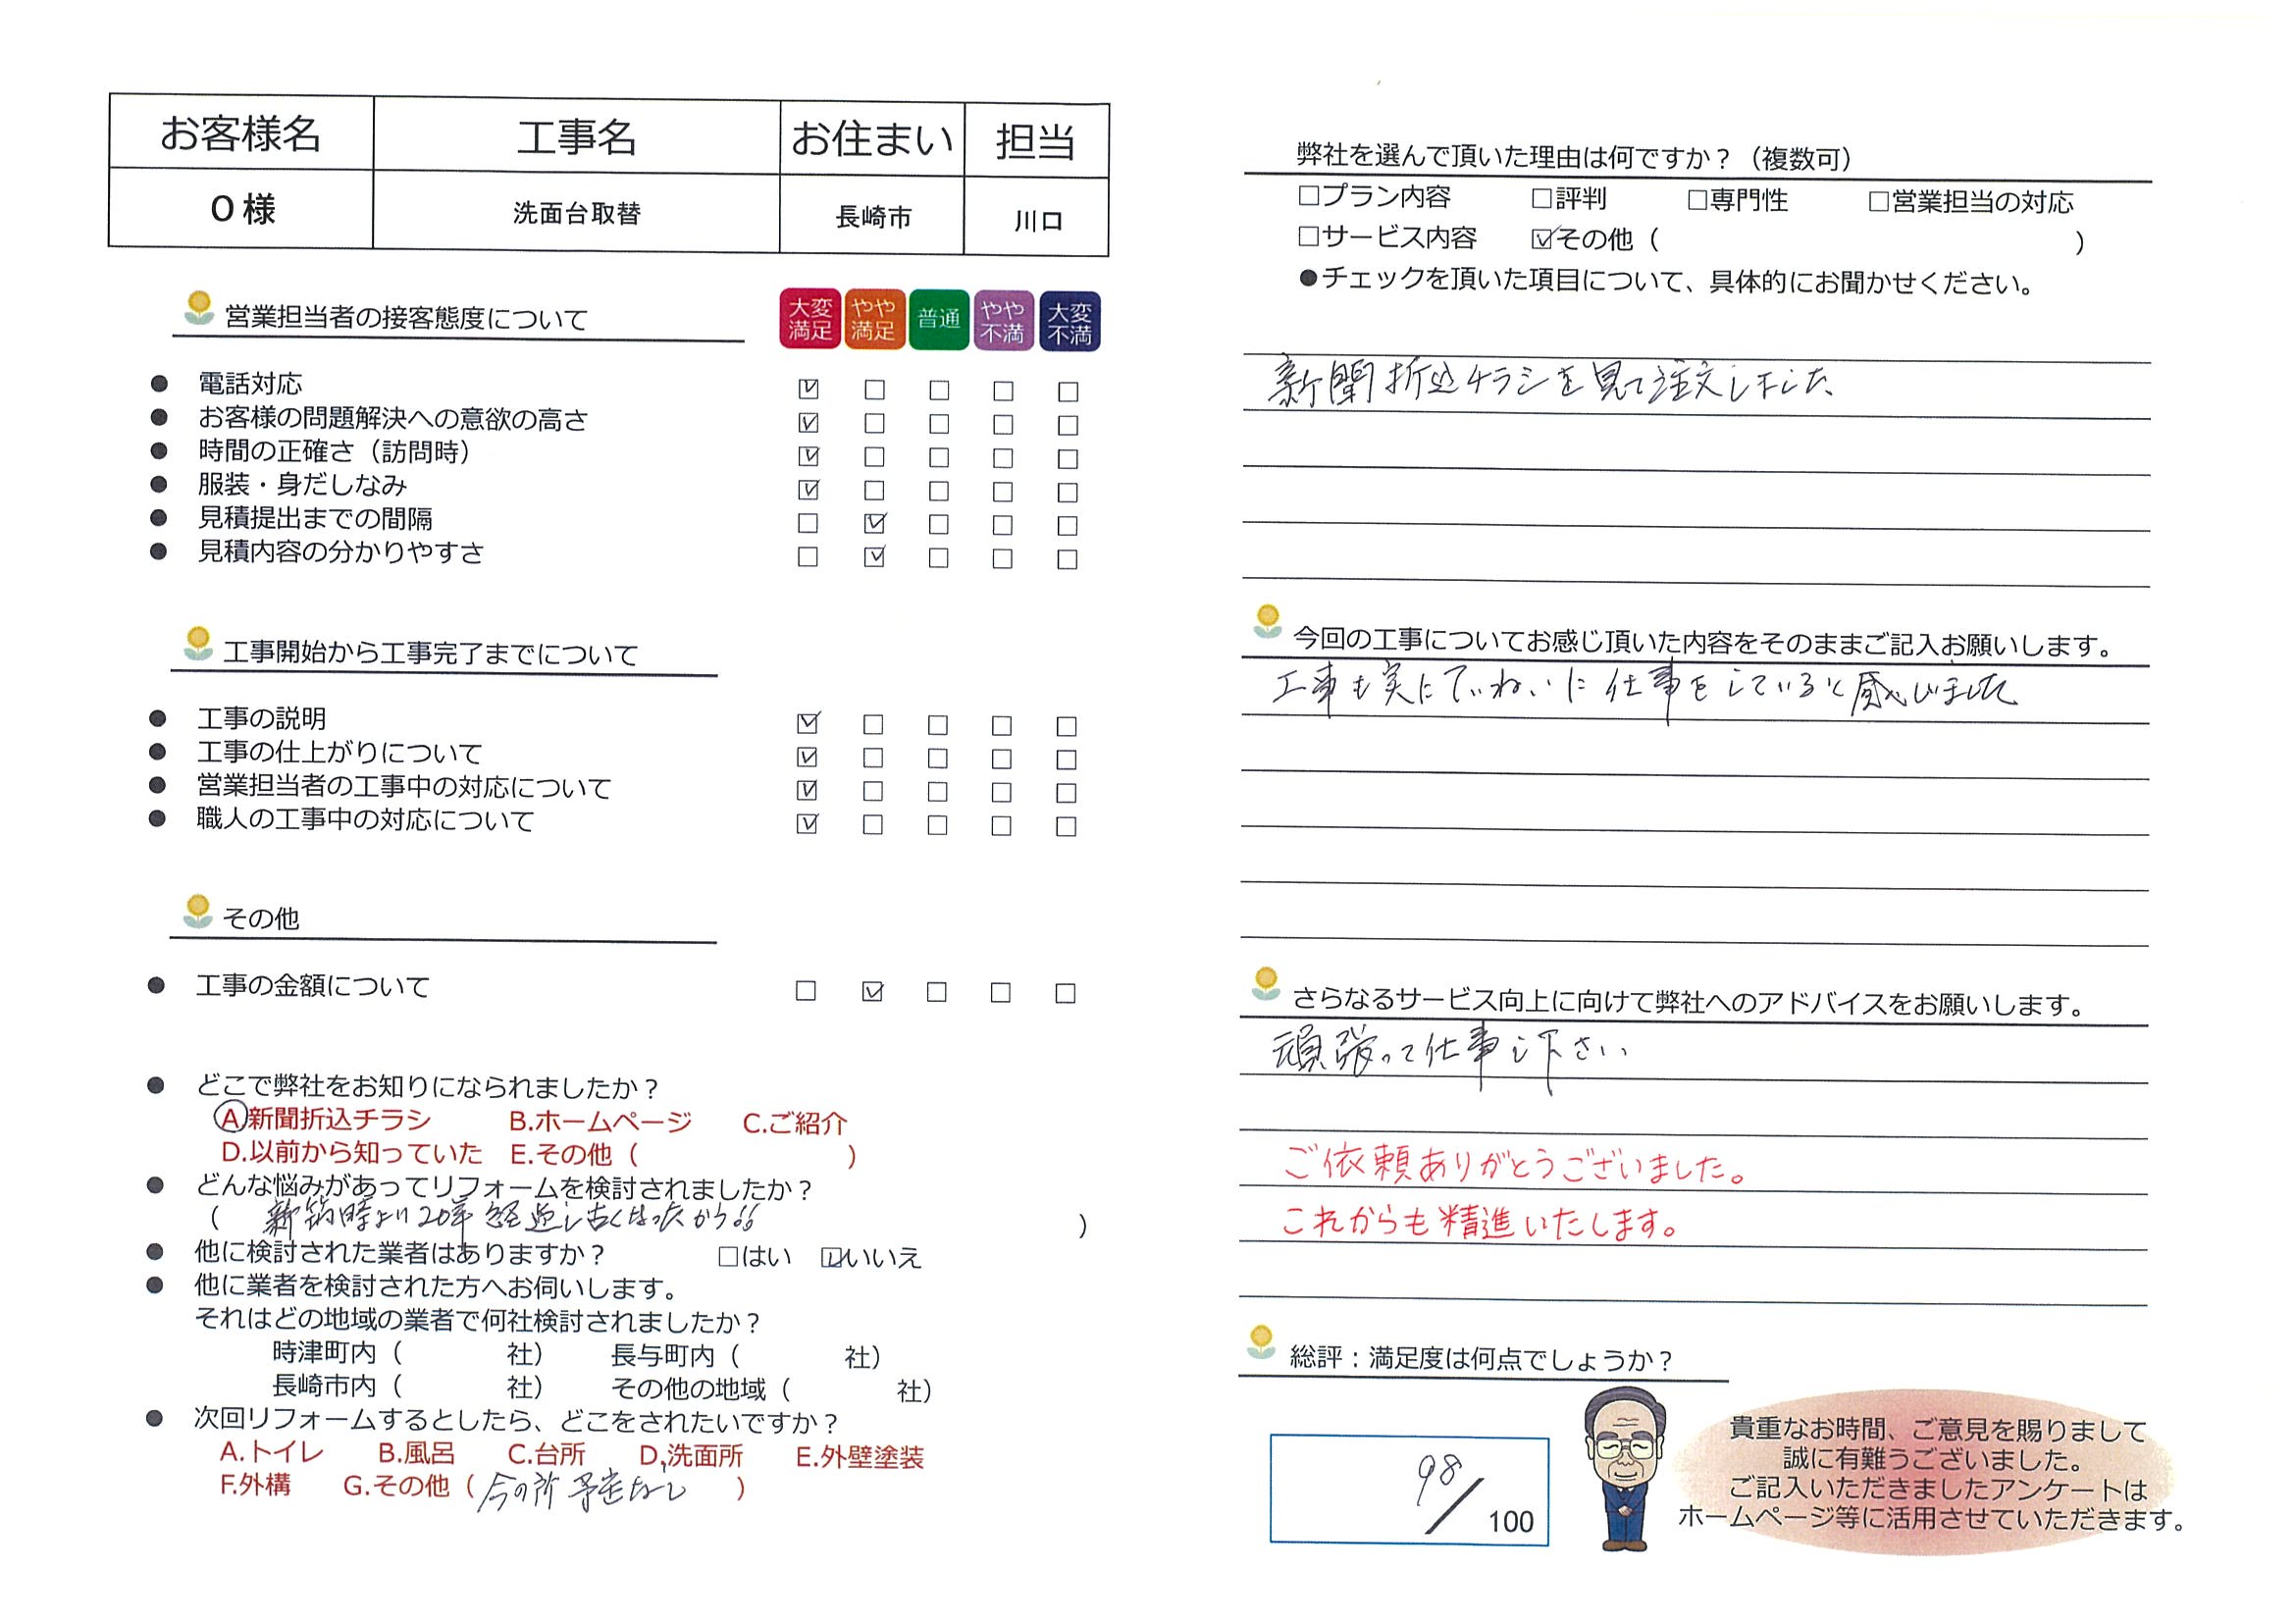 お客様名 工事名 お住まい 担当
O様 洗面台取替 長崎市 川口
営業担当者の接客態度について
大変満足 やや満足 普通 やや不満 大変不満
● 電話対応 ☑ □ □ □ □
● お客様の問題解決への意欲の高さ ☑ □ □ □ □
● 時間の正確さ（訪問時） ☑ □ □ □ □
● 服装・身だしなみ ☑ □ □ □ □
● 見積提出までの間隔 □ ☑ □ □ □
● 見積内容の分かりやすさ □ ☑ □ □ □
工事開始から工事完了までについて
● 工事の説明 ☑ □ □ □ □
● 工事の仕上がりについて ☑ □ □ □ □
● 営業担当者の工事中の対応について ☑ □ □ □ □
● 職人の工事中の対応について ☑ □ □ □ □
その他
● 工事の金額について □ ☑ □ □ □
● どこで弊社をお知りになられましたか？
Ⓐ新聞折込チラシ B.ホームページ C.ご紹介
D.以前から知っていた E.その他（ ）
● どんな悩みがあってリフォームを検討されましたか？
（ 新築時より20年経過し古くなったから!! ）
● 他に検討された業者はありますか？ □はい ☑いいえ
● 他に業者を検討された方へお伺いします。
それはどの地域の業者で何社検討されましたか？
時津町内（ 社） 長与町内（ 社）
長崎市内（ 社） その他の地域（ 社）
● 次回リフォームするとしたら、どこをされたいですか？
A.トイレ B.風呂 C.台所 D.洗面所 E.外壁塗装
F.外構 G.その他（今の所予定なし ）
弊社を選んで頂いた理由は何ですか？（複数可）
□プラン内容 □評判 □専門性 □営業担当の対応
□サービス内容 ☑その他（ ）
●チェックを頂いた項目について、具体的にお聞かせください。
新聞折込チラシを見て注文しました
今回の工事についてお感じ頂いた内容をそのままご記入お願いします。
工事も実にていねいに仕事をしていると感じました
さらなるサービス向上に向けて弊社へのアドバイスをお願いします。
頑張って仕事し下さい
ご依頼ありがとうございました。
これからも精進いたします。
総評：満足度は何点でしょうか？
98/100
貴重なお時間、ご意見を賜りまして
誠に有難うございました。
ご記入いただきましたアンケートは
ホームページ等に活用させていただきます。